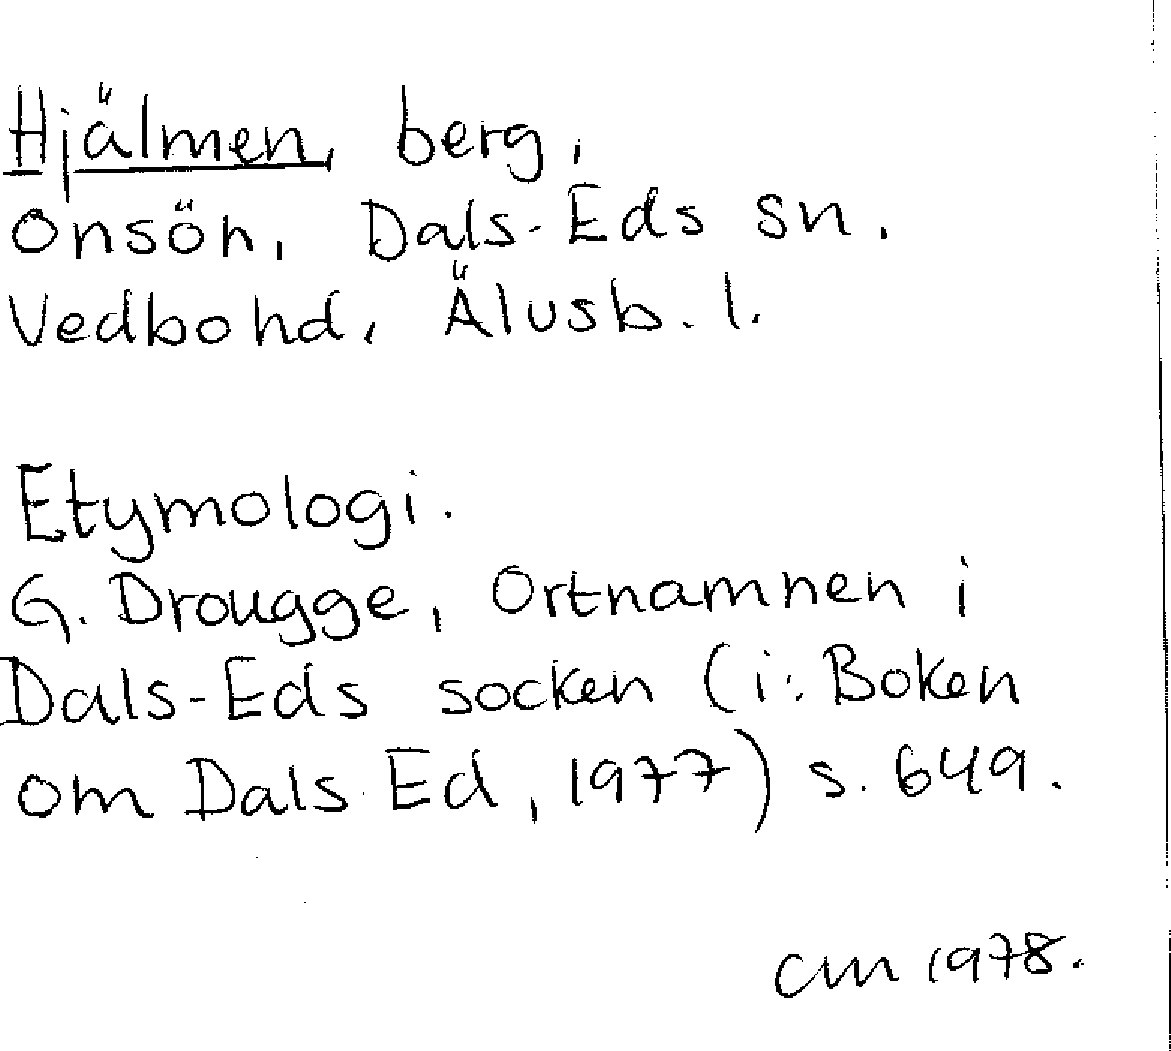 Hjälmen, berg,
Onsön, Dals-Eds sn.
Vedbohd, Älvsb. l.
Etymologi.
G. Drougge, Ortnamnen i
Dals-Eds socken (i: Boken
om Dals Ed, 1977) s. 649.
CM 1978.